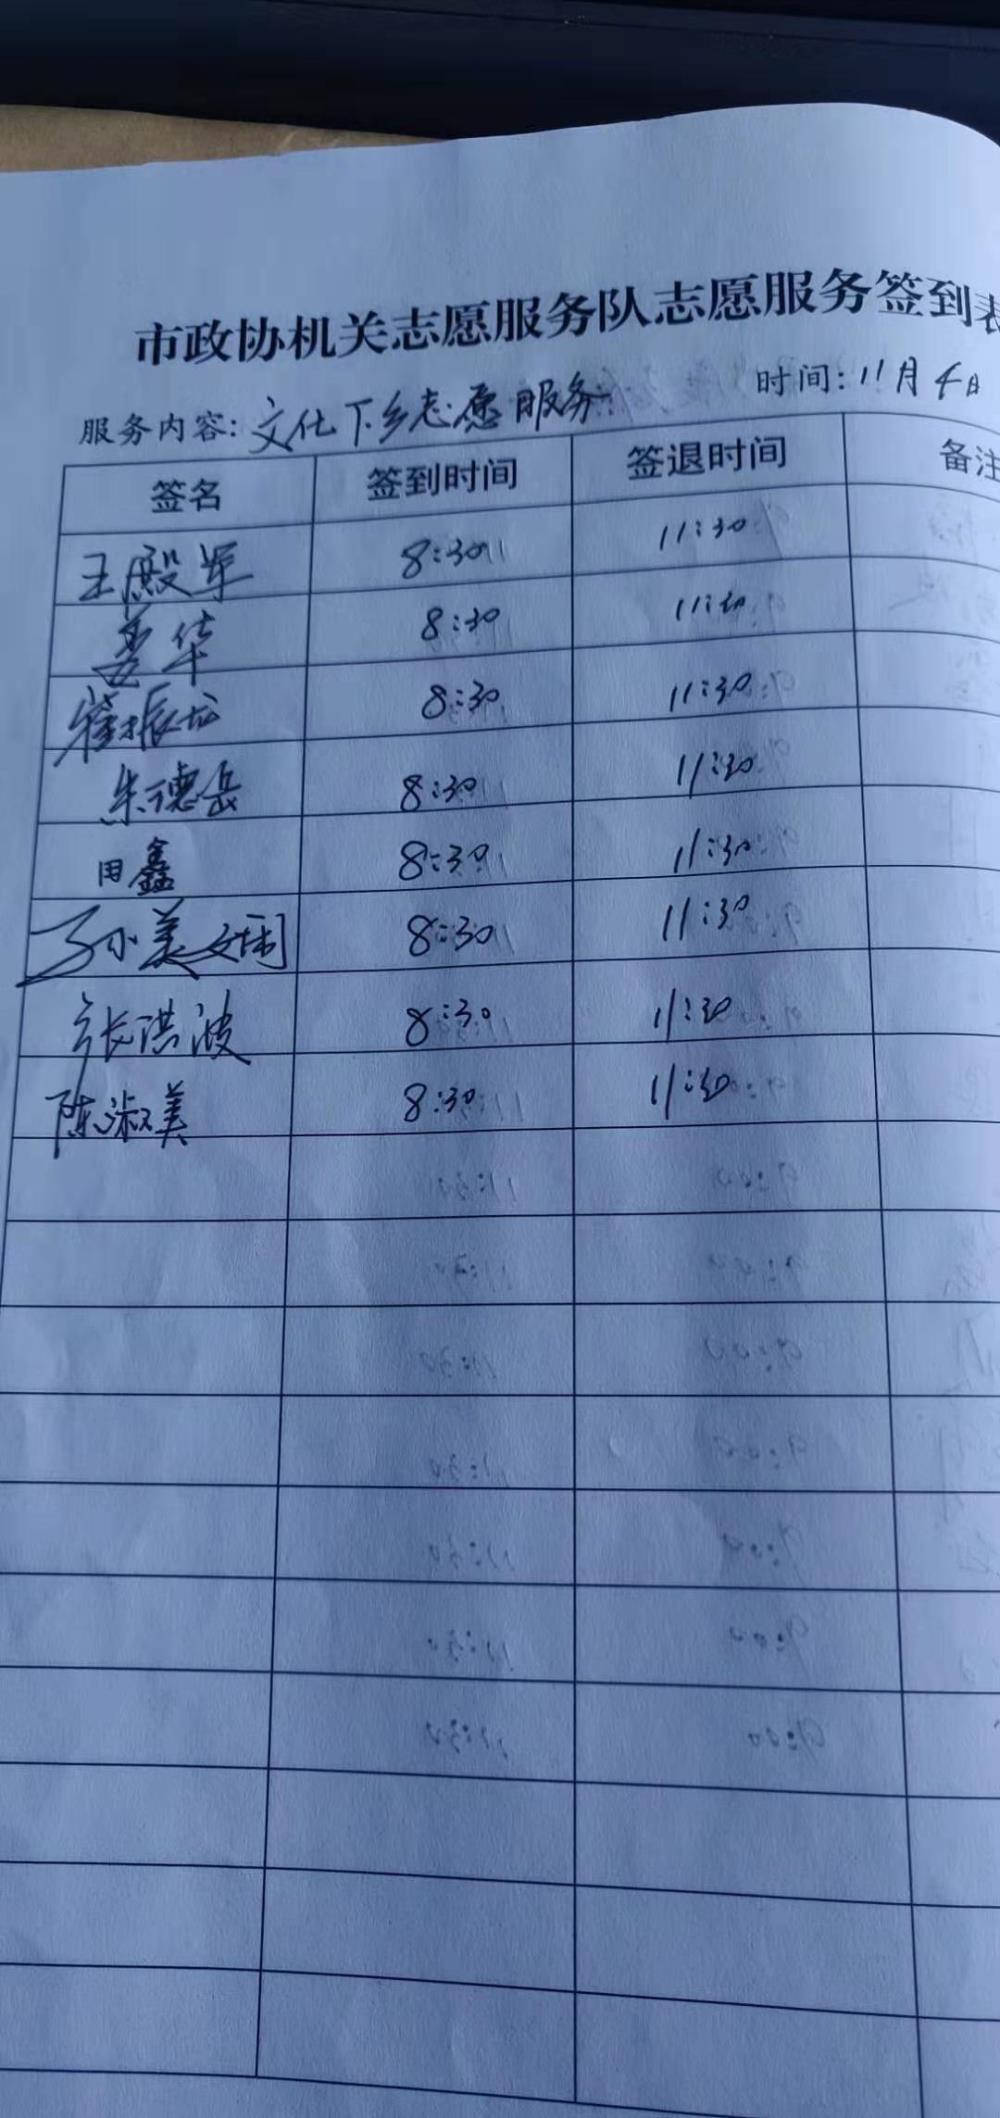 市政协机关志愿服务队志愿服务签到表
服务内容: 文化下乡志愿服务 时间: 11月4日
签名 签到时间 签退时间 备注
王殿军 8:30 11:30
姜华 8:30 11:30
崔振龙 8:30 11:30
朱德岳 8:30 11:30
田鑫 8:30 11:30
孙美娴 8:30 11:30
张洪波 8:30 11:30
陈淑美 8:30 11:30